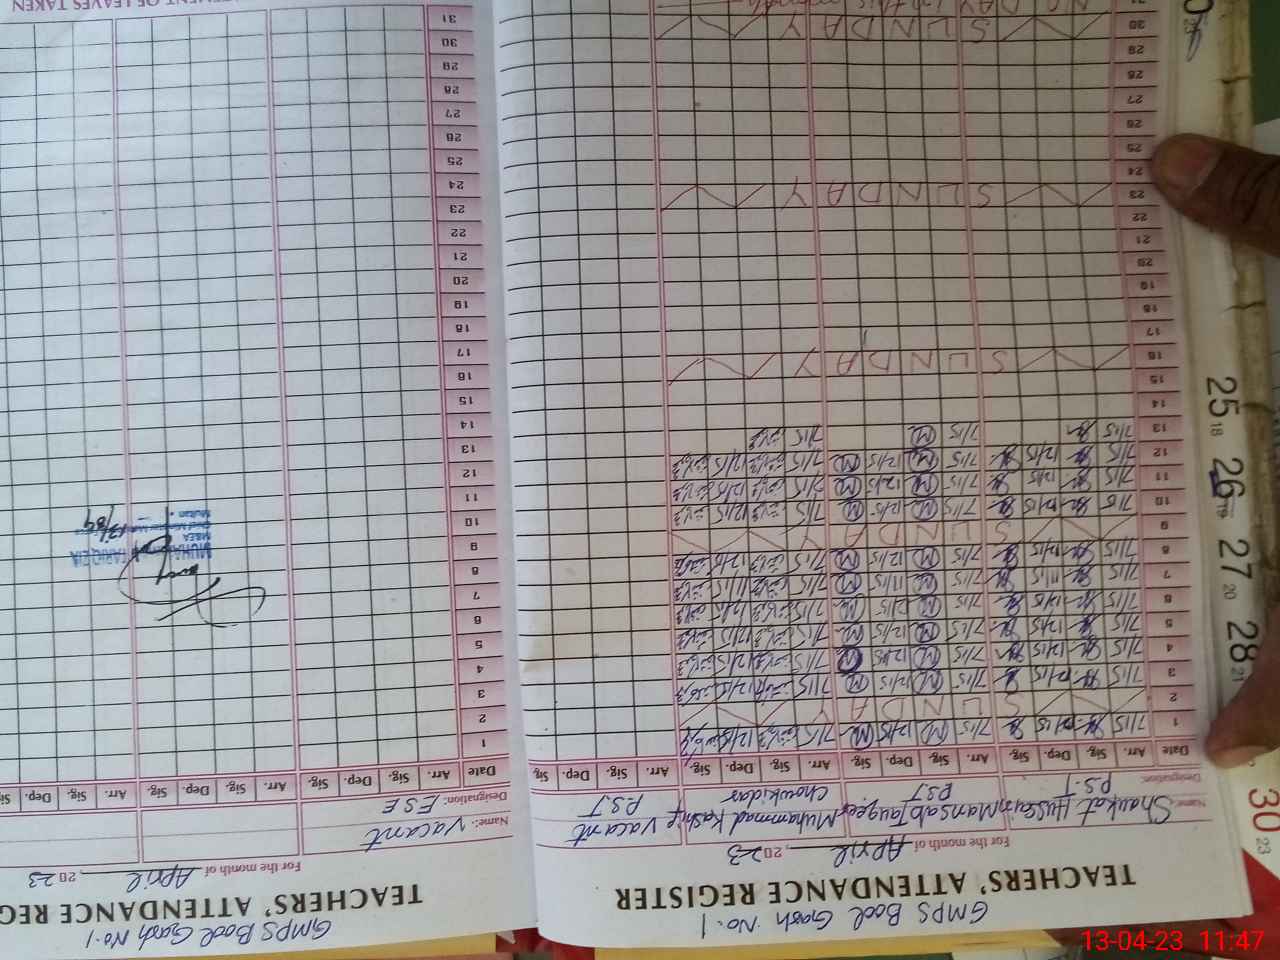 GMPS Bool Garh No.1
TEACHERS' ATTENDANCE REGISTER
For the month of April, 2023
Name: Shaukat Hussain Mansab Tauqeer Muhammad Kashif Vacant
Designation: P.S.T P.S.T Chowkidar P.S.T
Date Arr. Sig. Dep. Sig. Arr. Sig. Dep. Sig. Arr. Sig. Dep. Sig. Arr. Sig. Dep. Sig.
1 7/15 12/15 7/15 12/15 7/15 12/15
2 SUNDAY
3 7/15 12/15 7/15 12/15 7/15 12/15
4 7/15 12/15 7/15 12/15 7/15 12/15
5 7/15 12/15 7/15 12/15 7/15 12/15
6 7/15 12/15 7/15 12/15 7/15 12/15
7 7/15 11/15 7/15 11/15 7/15 11/15
8 7/15 12/15 7/15 12/15 7/15 12/15
9 SUNDAY
10 7/15 12/15 7/15 12/15 7/15 12/15
11 7/15 12/15 7/15 12/15 7/15 12/15
12 7/15 12/15 7/15 12/15 7/15 12/15
13 7/15 7/15 7/15
14
15
16 SUNDAY
17
18
19
20
21
22
23 SUNDAY
24
25
26
27
28
29
30 SUNDAY
31 NO DAY in this month
GMPS Bool Garh No.1
TEACHERS' ATTENDANCE REG
For the month of April, 2023
Name: Vacant
Designation: ESE
Date Arr. Sig. Dep. Sig. Arr. Sig. Dep. Si
1
2
3
4
5
6
7
8
9
10
11
12
13
14
15
16
17
18
19
20
21
22
23
24
25
26
27
28
29
30
31
TEMENT OF LEAVES TAKEN
MUHA TARIQ ZIA
MEA
Multan
13/04
25 18
26 19
27 20
28 21
30 23
13-04-23 11:47